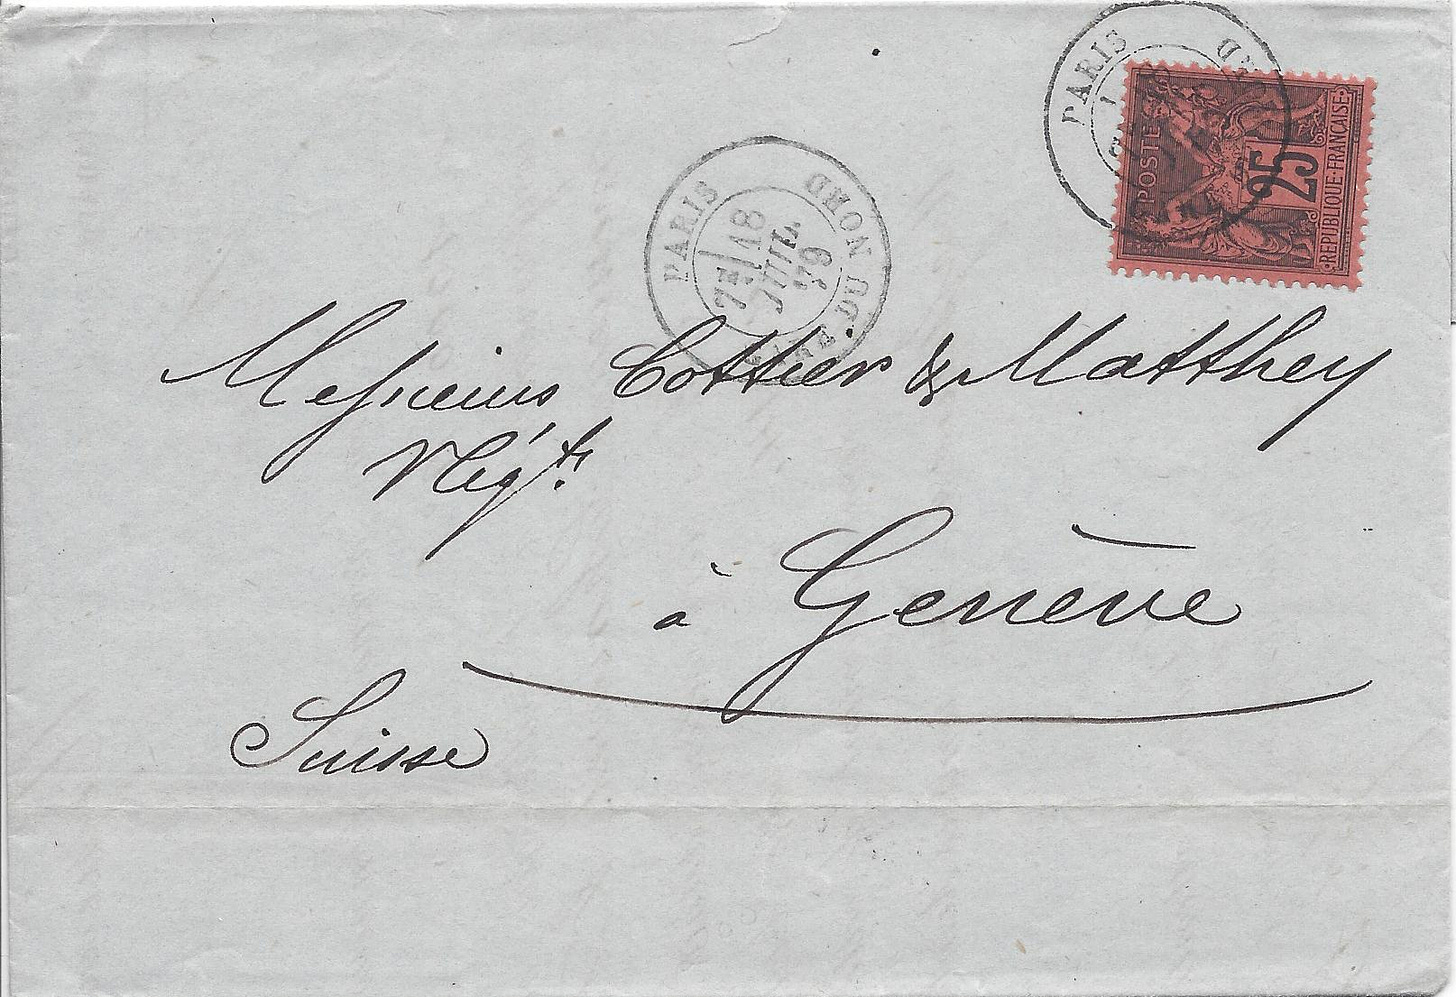 PARIS
GARE DU NORD
7E 18
JUIL
79
PARIS
POSTE
25
REPUBLIQUE·FRANÇAISE
Messieurs Cottier & Matthey
Négts.
à Genève
Suisse